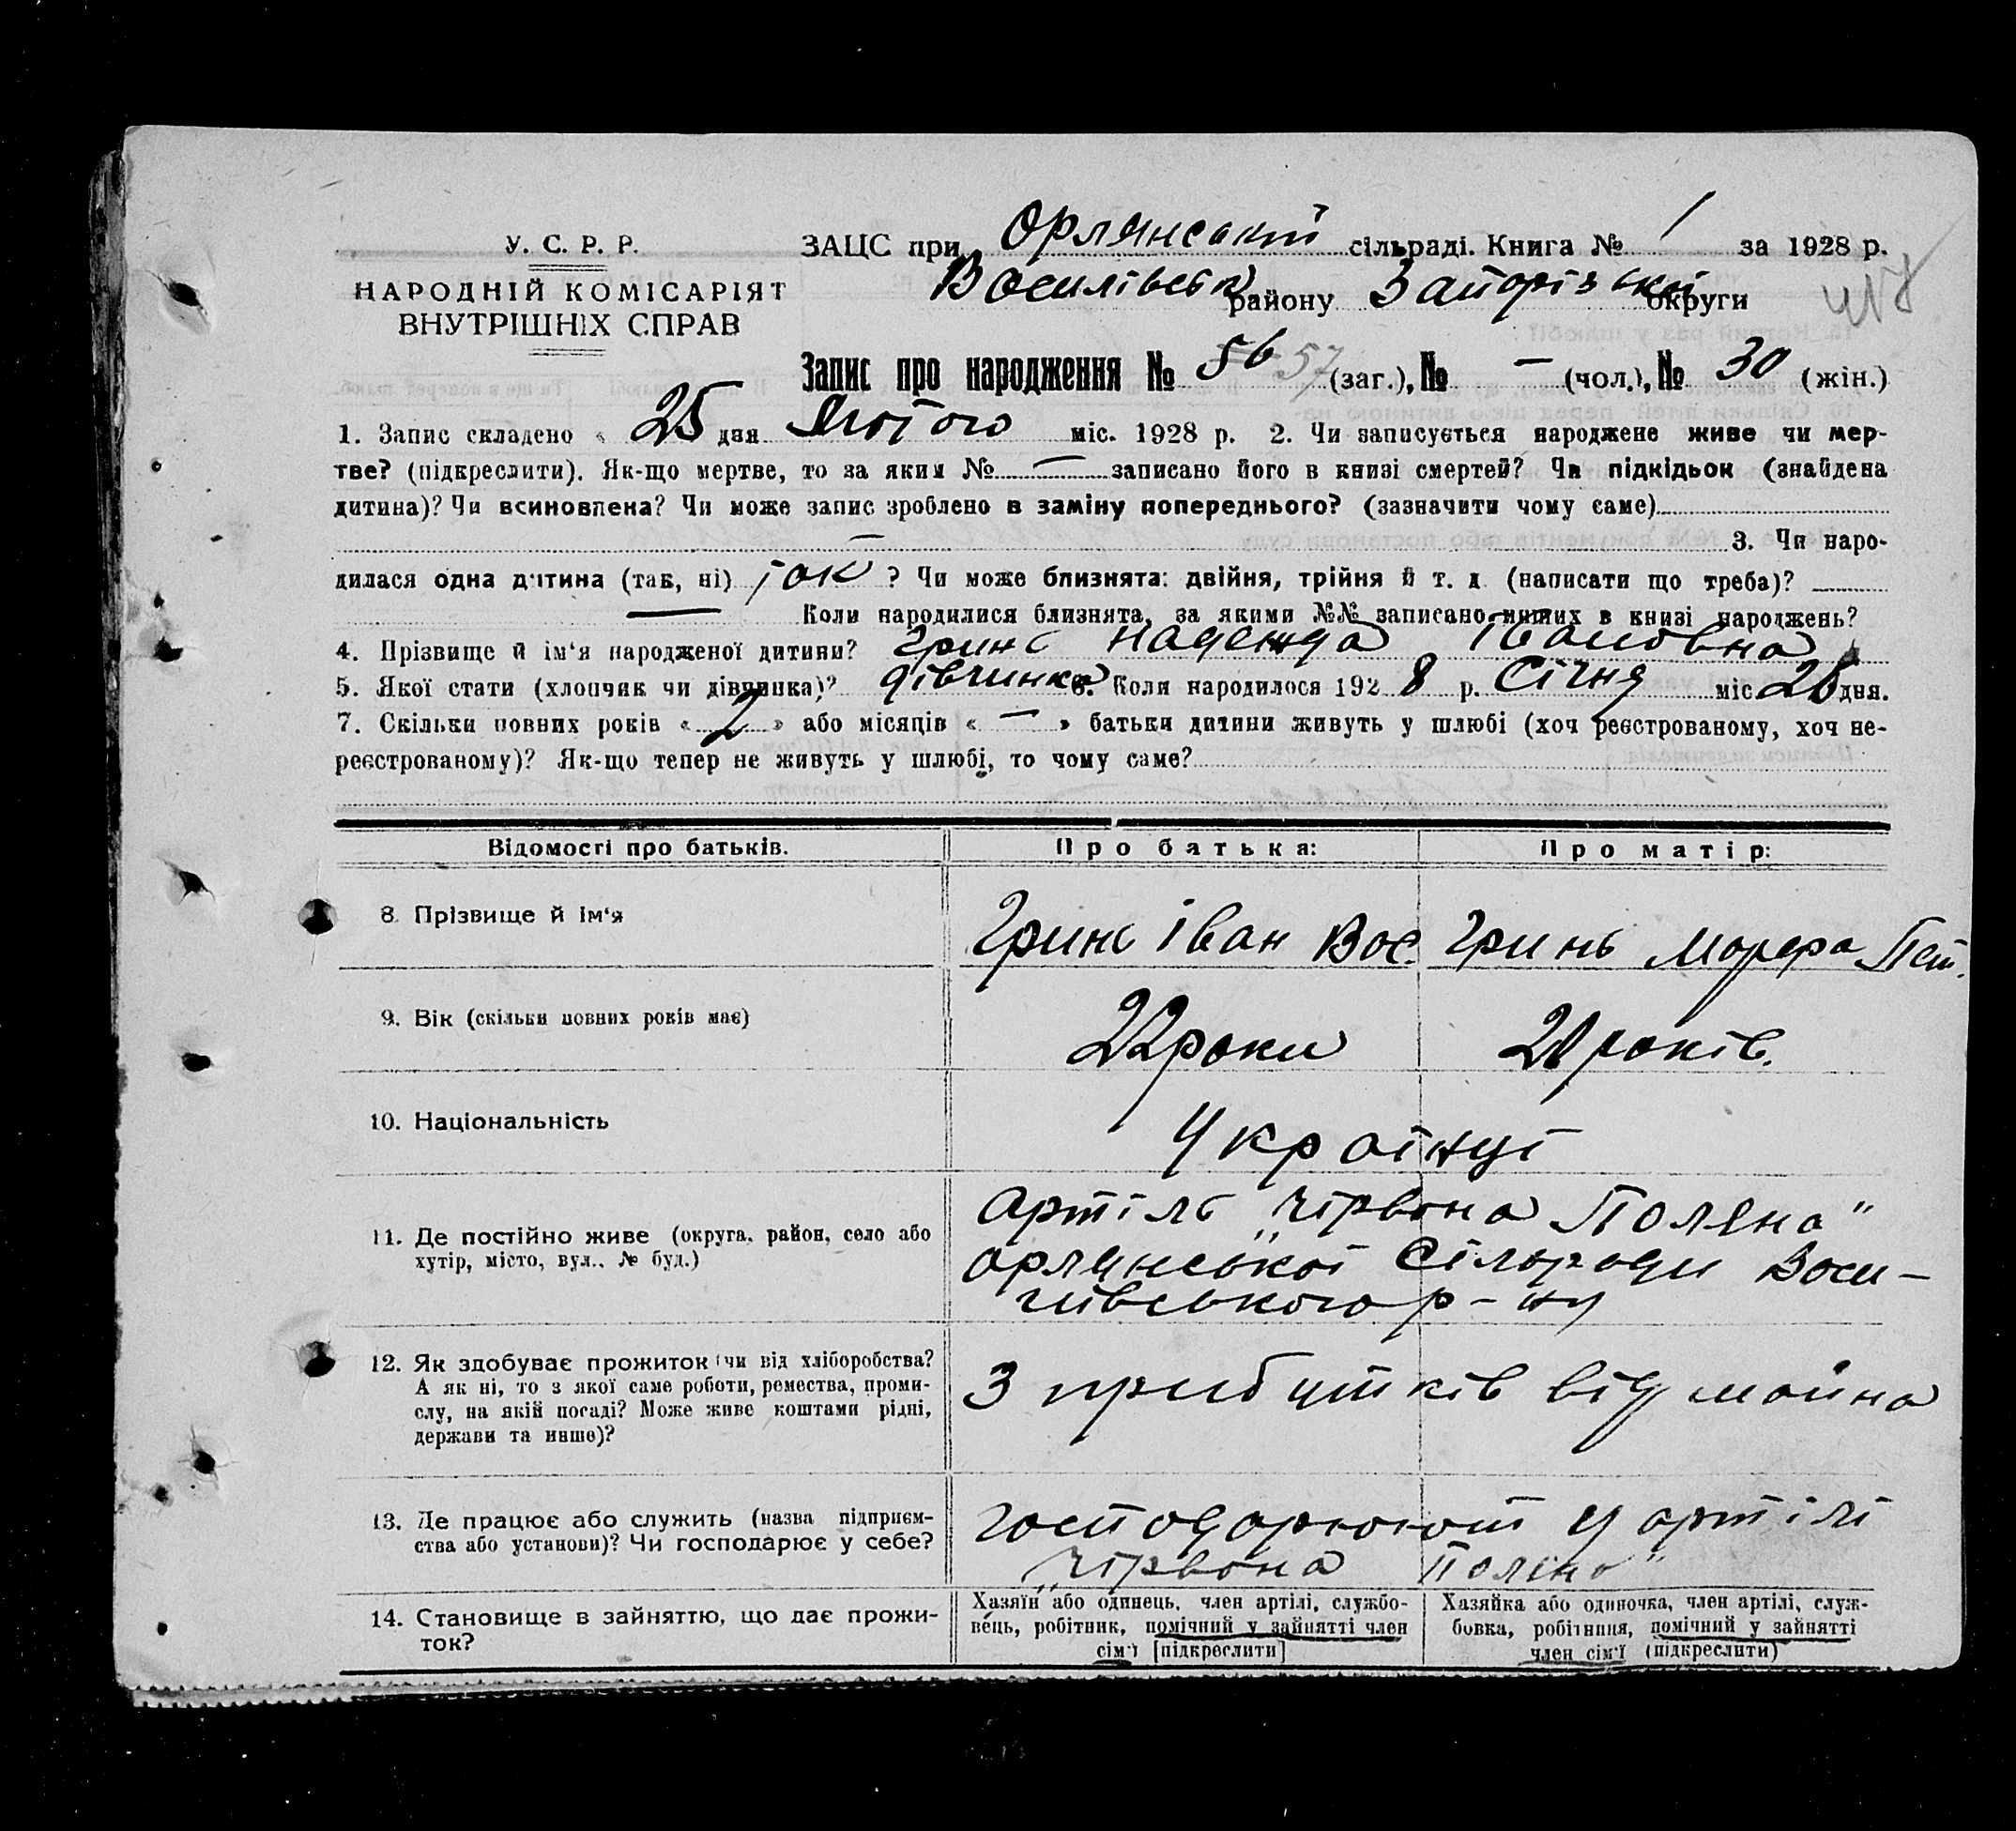 У. С. Р. Р.
НАРОДНІЙ КОМІСАРІЯТ
ВНУТРІШНІХ СПРАВ
ЗАЦС при Орлянській сільраді. Книга № 1 за 1928 р.
Василівськ району Запорізької округи
Запис про народження № 56 57 (заг.), № — (чол.), № 30 (жін.)
1. Запис складено « 25 дня Лютого міс. 1928 р. 2. Чи записується народжене живе чи мер-
тве? (підкреслити). Як-що мертве, то за яким № — записано його в книзі смертей? Чи підкідьок (знайдена
дитина)? Чи всиновлена? Чи може запис зроблено в заміну попереднього? (зазначити чому саме)
— 3. Чи наро-
дилася одна дитина (так, ні) так ? Чи може близнята: двійня, трійня й т. д. (написати що треба)?
— Коли народилися близнята, за якими №№ записано инших в книзі народжень? —
4. Прізвище й ім'я народженої дитини? Гринь Надежда Івановна
5. Якої стати (хлопчик чи дівчинка)? дівчинка 6. Коли народилося 1928 р. Січня міс 28 дня.
7. Скільки повних років « 2 » або місяців « — » батьки дитини живуть у шлюбі (хоч реєстрованому, хоч не-
реєстрованому)? Як-що тепер не живуть у шлюбі, то чому саме?
Відомості про батьків. Про батька: Про матір:
8. Прізвище й ім'я Гринь Іван Вас. Гринь Марфа Пет.
9. Вік (скільки повних років має) 22 роки 20 років.
10. Національність Українці
11. Де постійно живе (округа, район, село або
хутір, місто, вул., № буд.)
Артіль „Чірвона Поляна"
Орлянської Сільради Васи-
лівського р-ну
12. Як здобуває прожиток (чи від хліборобства?
А як ні, то з якої саме роботи, ремества, проми-
слу, на якій посаді? Може живе коштами рідні,
держави та инше)?
З прибутків від майна
13. Де працює або служить (назва підприєм-
ства або установи)? Чи господарює у себе?
господарюют у артілі
„Чірвона Поляна"
14. Становище в зайняттю, що дає прожи-
ток?
Хазяїн або одинець, член артілі, службо-
вець, робітник, помічний у зайнятті член
сім'ї [підкреслити]
Хазяйка або одиночка, член артілі, служ-
бовка, робітниця, помічний у зайнятті
член сім'ї (підкреслити)